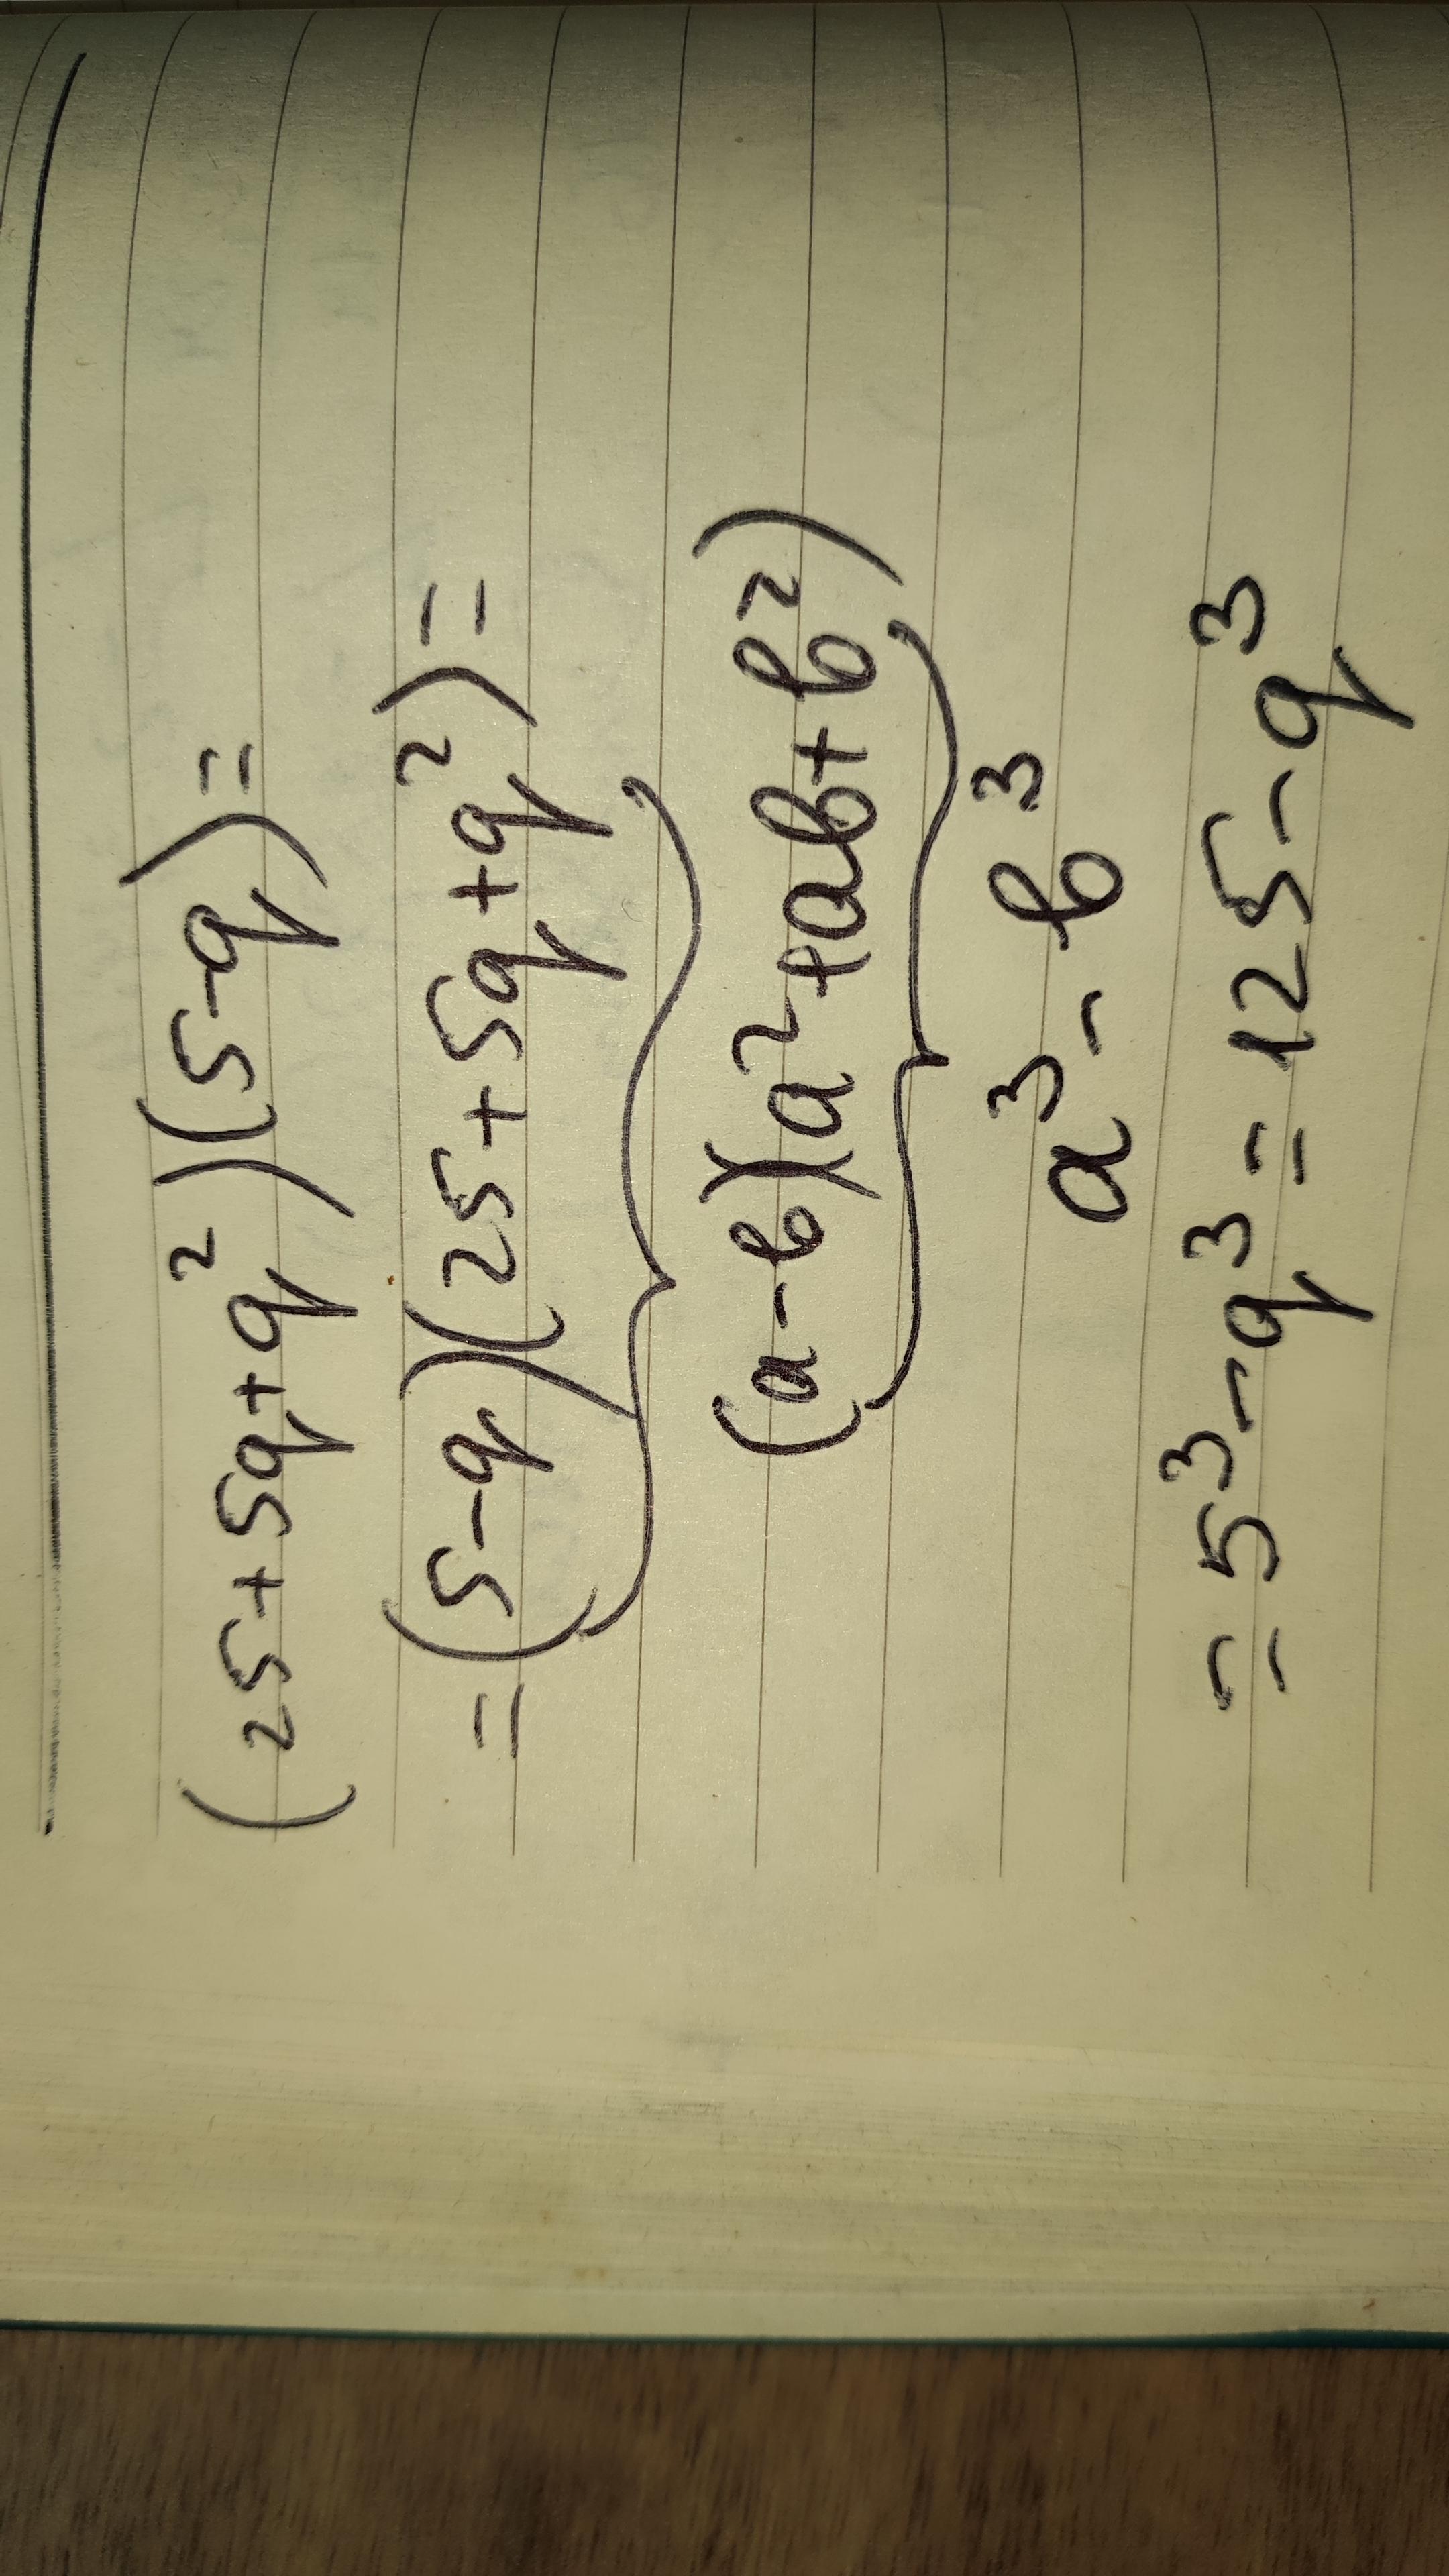 (25+5q+q²)(5-q)=
=(5-q)(25+5q+q²)=
(a-b)(a²+ab+b²)
a³-b³
=5³-q³=125-q³